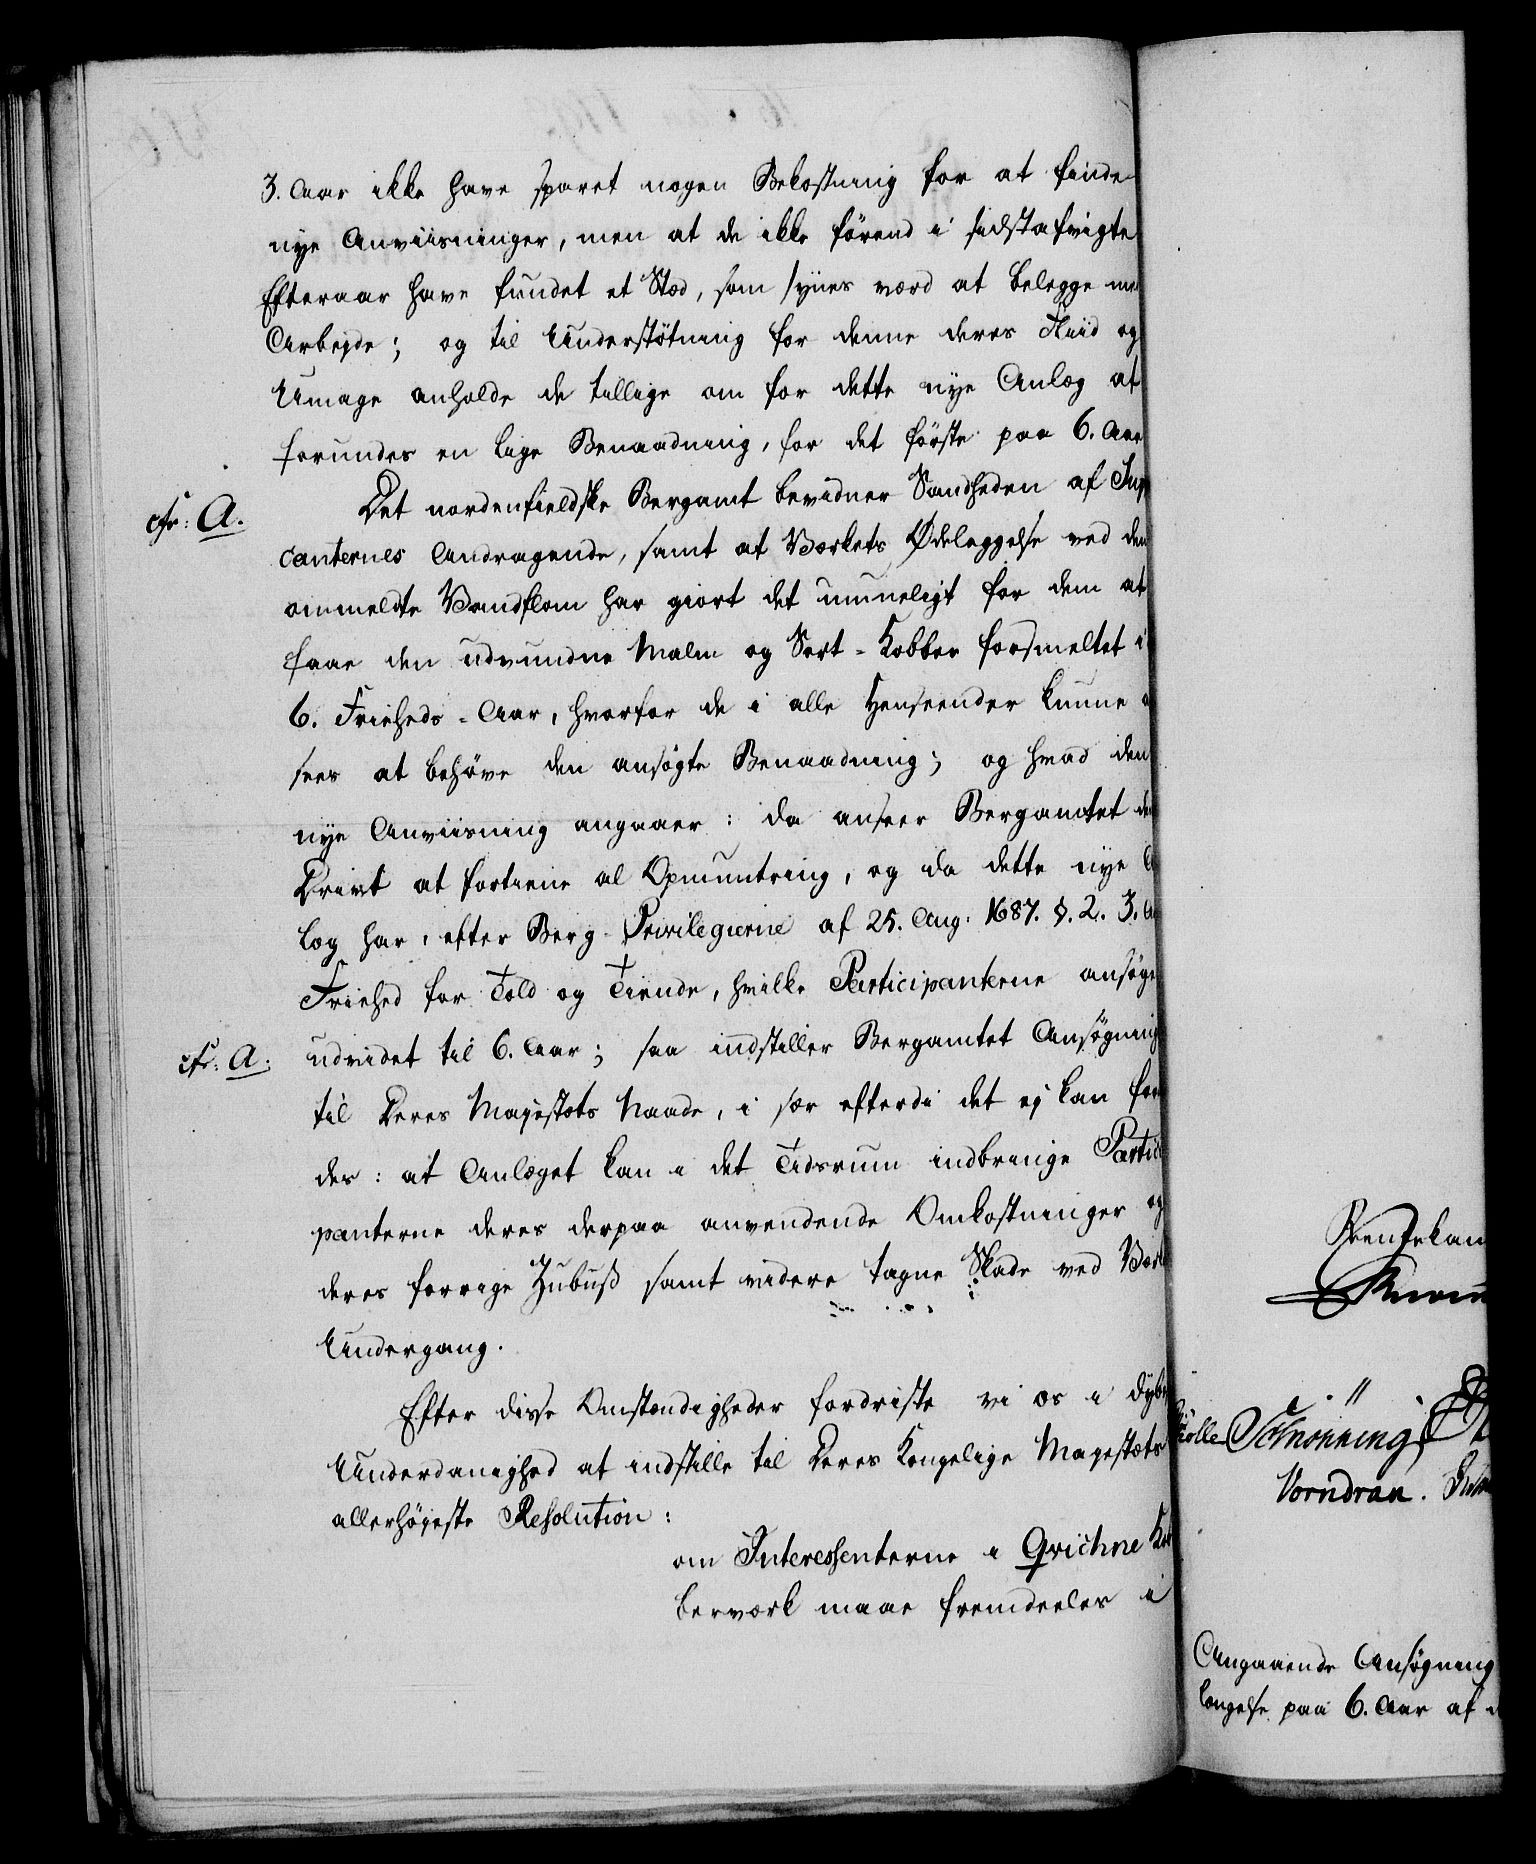 3. Aar ikke have sparet nogen Bekostning for at finde
nye Anviisninger, men at de ikke förend i sidstafvigte
Efteraar have fundet et Stæd, som synes værd at belegge me
Arbejde; og til Understötning for denne deres Fliid og
Umage anholde de tillige om for dette nye Anlæg at
forundes en lige Benaadning, for det förste paa 6. Aar
cfr: A.
Det nordenfieldske Bergamt bevidner Sandheden af Sup
canternes Andragende, samt at Værkets Ødeleggelse ved den
ommeldte Vandflom har giort det umueligt for dem at
faae den udvundne Malm og Sort-Kobber forsmeltet i
6. Friheds-Aar, hvorfor de i alle Henseender kunne a
sees at behöve den ansøgte Benaadning; og hvad den
nye Anviisning angaaer: da anseer Bergamtet de
Drivt at fortiene al Opmuntring, og da dette nye A
læg har, efter Berg-Privilegierne af 25. Aug: 1687. §. 2. 3. A
Friehed for Told og Tiende, hvilke Participanterne ansøge
cfr: A:
udvidet til 6. Aar; saa indstiller Bergamtet Ansøgning
til Deres Majestæts Naade, i sær efterdi det ej kan for
des: at Anlæget kan i det Tidsrum indbringe Partici
panterne deres derpaa anvendende Omkostninger og
deres forrige Zubuß samt videre tagne Skade ved Værk
Undergang.
Efter disse Omstændigheder fordriste vi os i dybe
Underdanighed at indstille til Deres Kongelige Majestæts
allerhøjeste Resolution:
om Interessenterne i Qvichne Kob
berværk maae fremdeeles i
Rentekam
Schönning
Vorndran.
Angaaende Ansøgning
længelse paa 6. Aar af